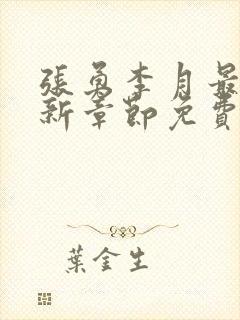 張勇李月最
新章節免費
葉金生